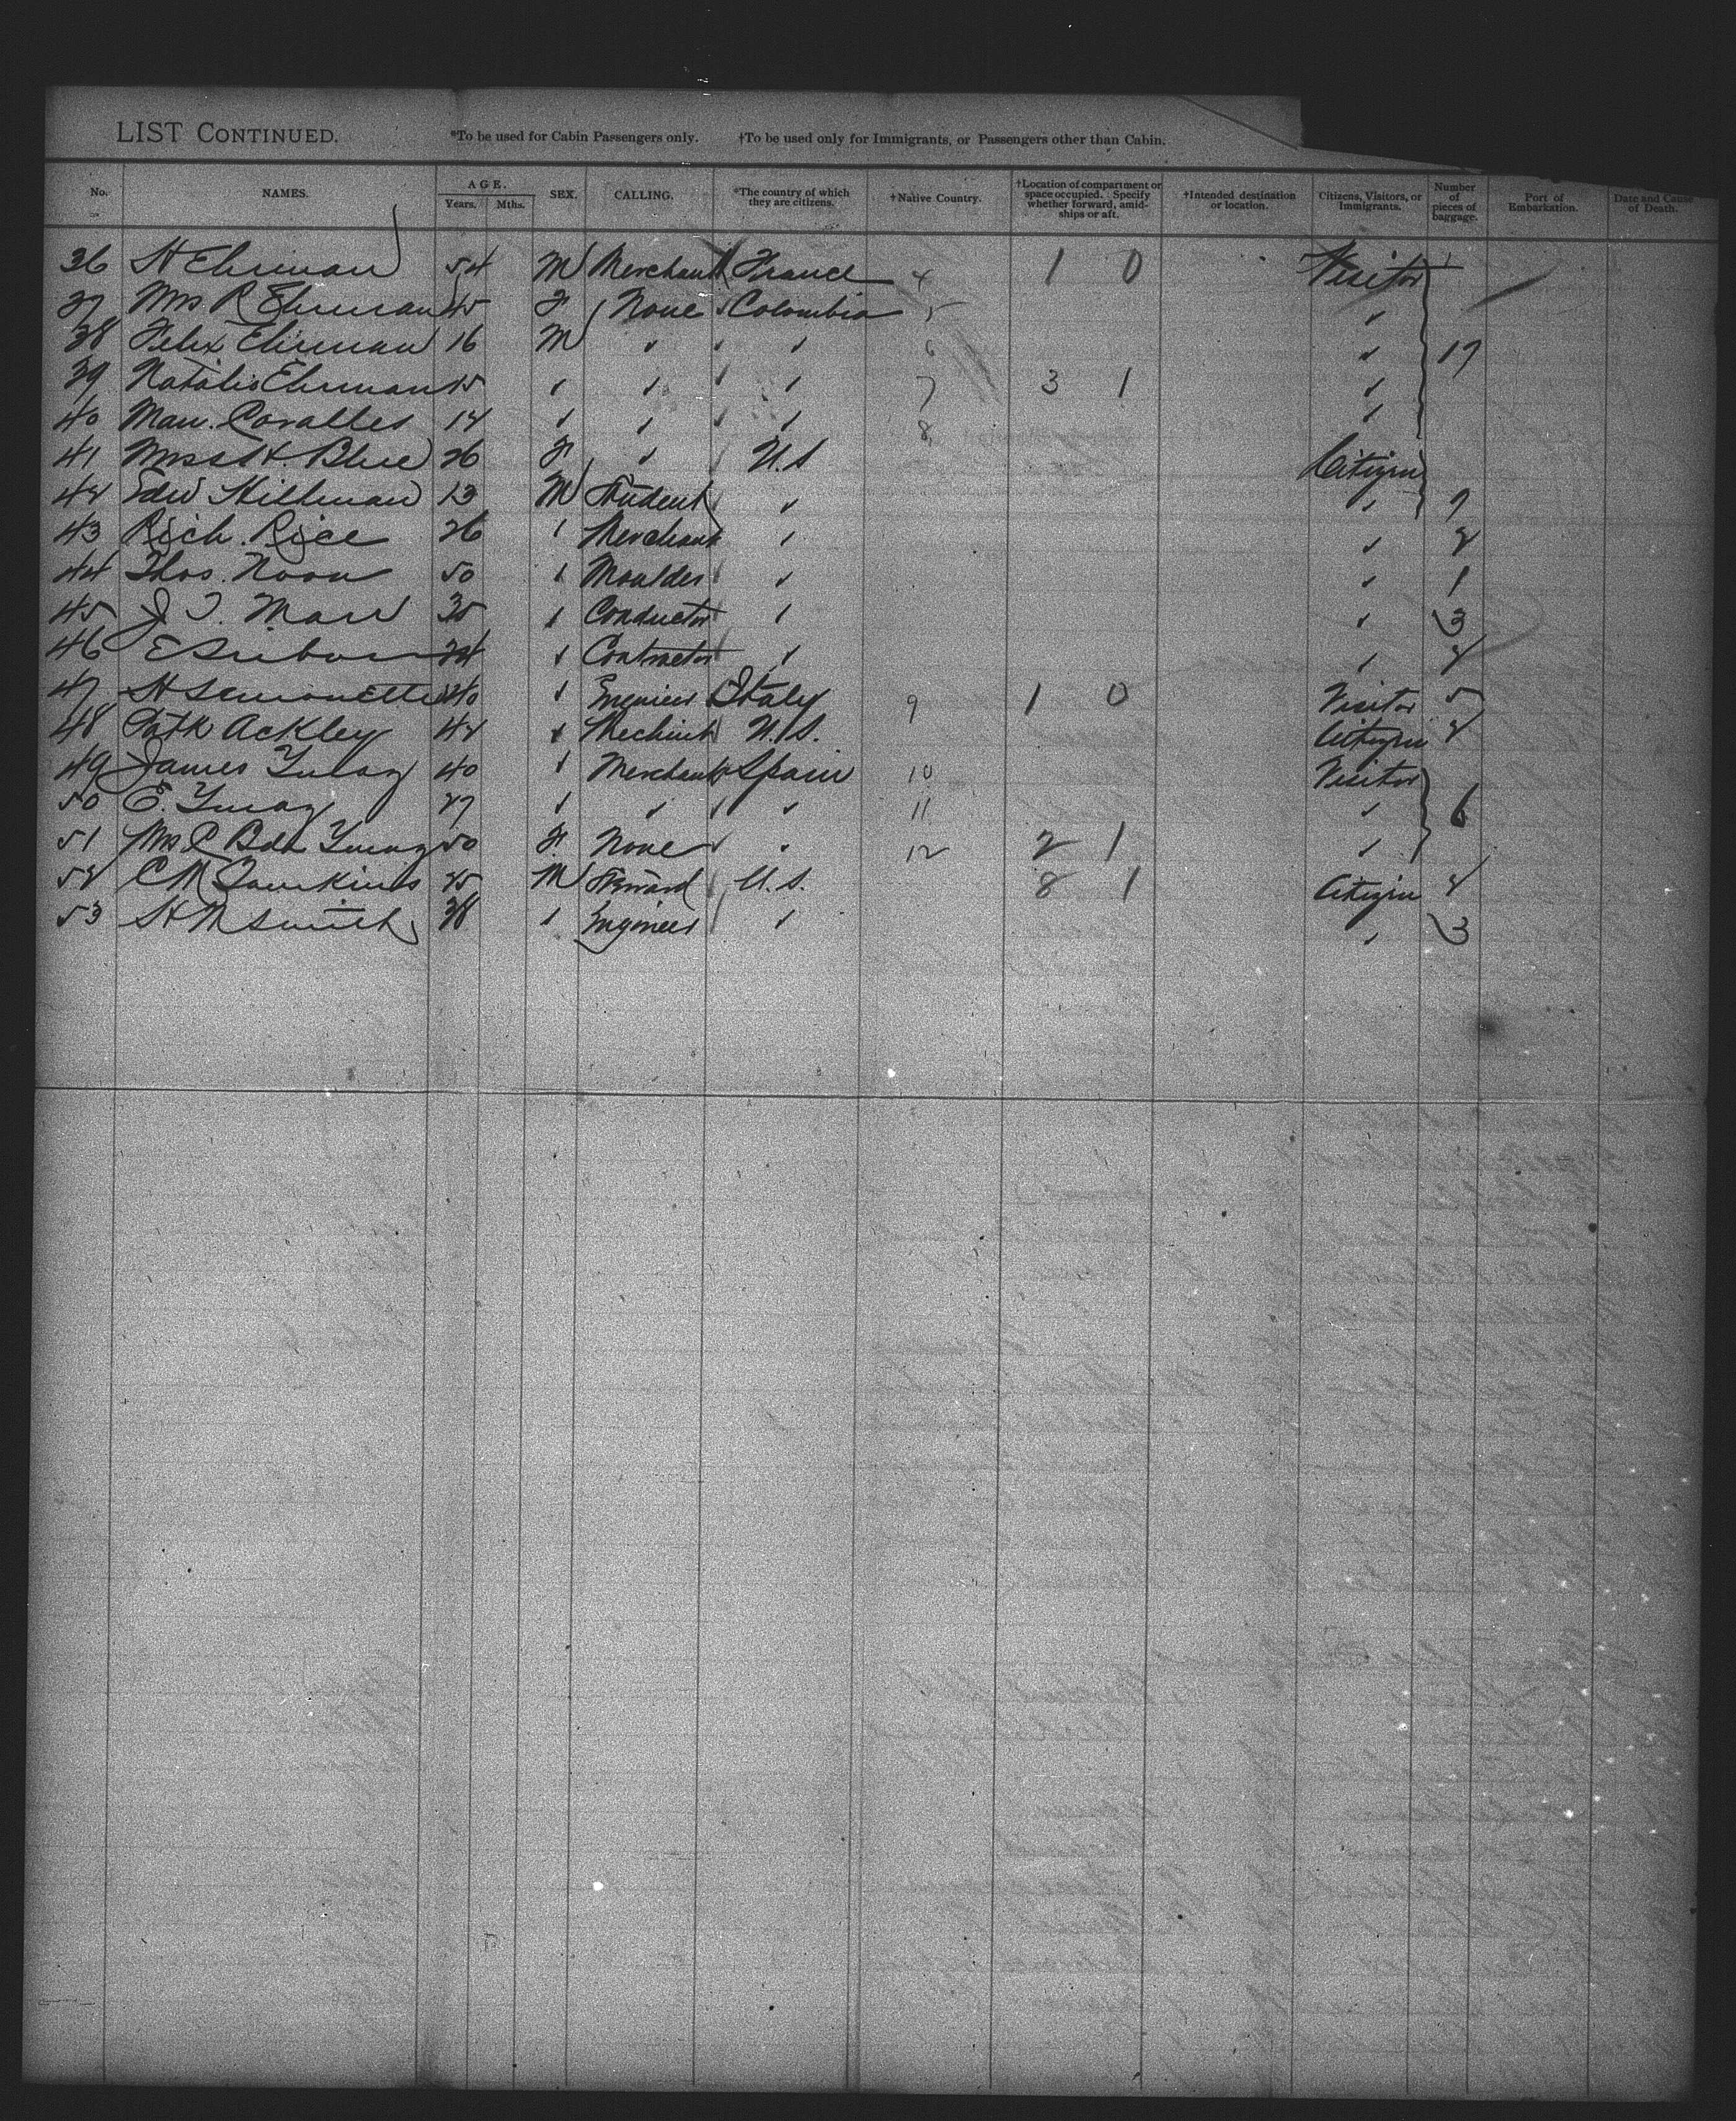 LIST CONTINUED. *To be used for Cabin Passengers only. †To be used only for Immigrants, or Passengers other than Cabin.
No. NAMES. AGE. Years. Mths. SEX. CALLING. *The country of which they are citizens. †Native Country. †Location of compartment or space occupied. Specify whether forward, amidships or aft. †Intended destination or location. Citizens, Visitors, or Immigrants. Number of pieces of baggage. Port of Embarkation. Date and Cause of Death.
36 H Ehrman 54 M Merchant France 4 1 0 Visitor
37 Mrs R Ehrman 45 F None Colombia 5 ✓
38 Felix Ehrman 16 M ✓ ✓ 6 ✓ 17
39 Natalis Ehrman 15 ✓ ✓ ✓ 7 3 1 ✓
40 Man. 14 ✓ ✓ ✓ 8 ✓
41 H. Blue 26 F ✓ U.S Citizen
42 Edw Hillman 13 M Student ✓ ✓ 7
43 Rich. Rice 26 ✓ Merchant ✓ ✓ 2
44 Thos. Noon 50 ✓ Moulder ✓ ✓ 1
45 J T. 35 ✓ Conductor ✓ ✓ 3
46 E ✓ Contractor ✓ ✓ 2
47 H 40 ✓ Italy 9 1 0 Visitor 5
48 Patk Ackley 42 ✓ Mechinist U.S. Citizen 2
49 James 40 ✓ Merchant Spain 10 Visitor
50 E. 27 ✓ ✓ ✓ 11 ✓ 6
51 Mrs 50 F None ✓ 12 2 1 ✓
52 C M 25 M Steward U.S. 8 1 Citizen 2
53 H M Smith 28 ✓ Engineer ✓ ✓ 3